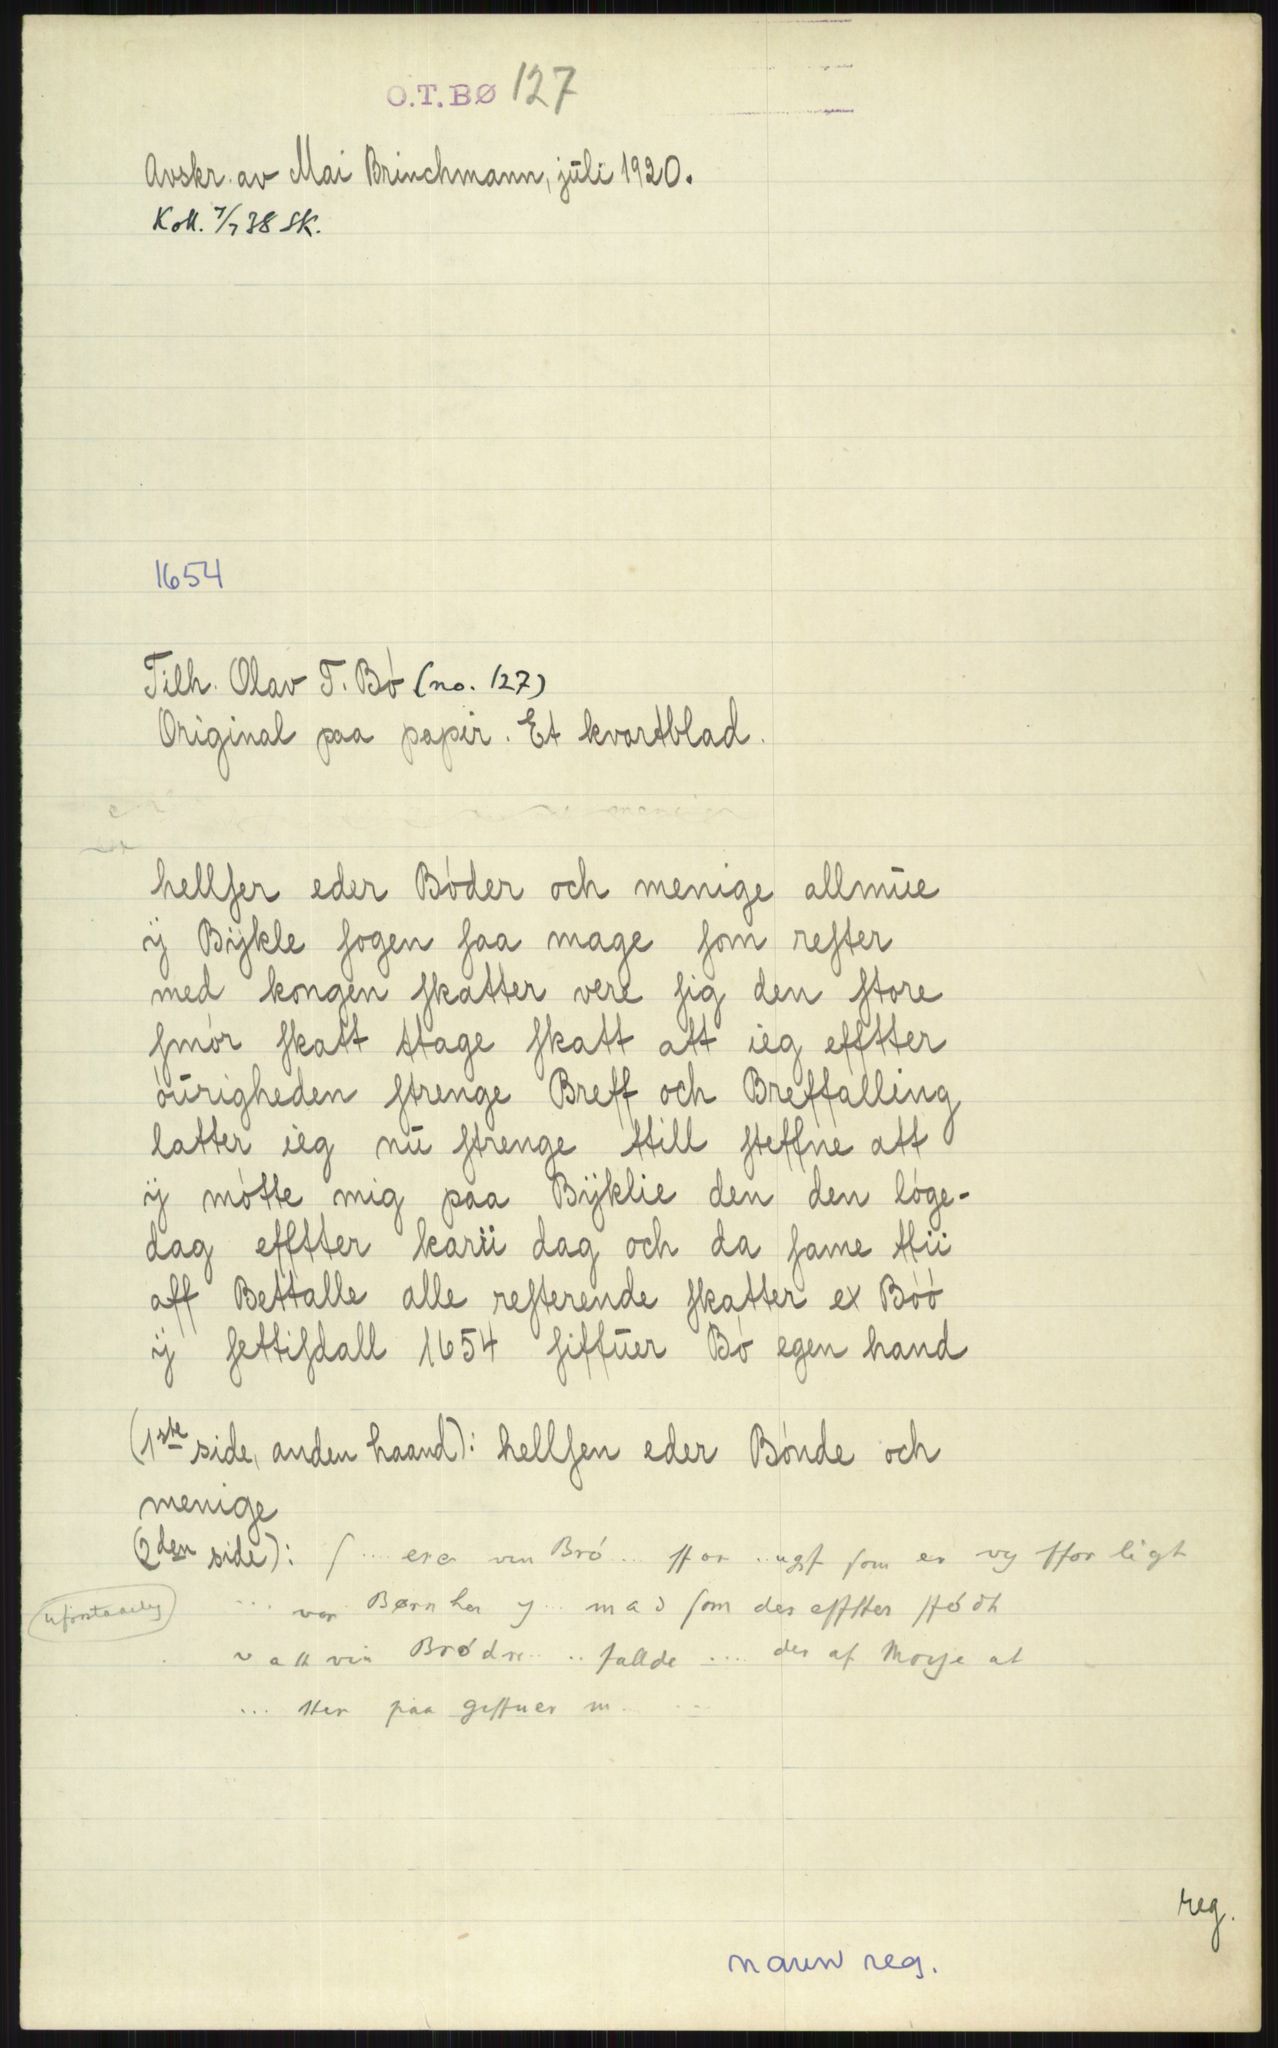 O.T.BØ 127
Avskr. av Mai Brinchmann, juli 1920.
Koll. 7/7 38 SK.
1654
Tilh. Olav T. Bó (no. 127)
Original paa papir. Et kvartblad.
hellſer eder Bóder och menige allmūe
ÿ Bÿkle ſogen ſaa mage ſom reſter
med kongen ſkatter vere ſig den ſtore
ſmór ſkatt ttage ſkatt att ieg efftter
óūrigheden ſtrenge Breff och Breffalling
latter ieg nū ſtrenge ttill ſteffne att
ÿ mótte mig paa Bÿklie den den lóge-
dag efftter karii dag och da ſame ttii
aff Bettalle alle reſterende ſkatter ex Bóó
ÿ ſettiſdall 1654 ſiffūer Bó egen hand
(1ste side, anden haand): hellſen eder Bónde och
menige
(2den side): ſ.... era ven Bró... ffor ..ugſ ſom er vy ffor ligt
uforstaaelig
... vor Børn her y... mad ſom der effter ffódt
vall vin Brødr.. .. fallde .... der af Morſe at
... tter paa geffuer m.
reg.
navn reg.